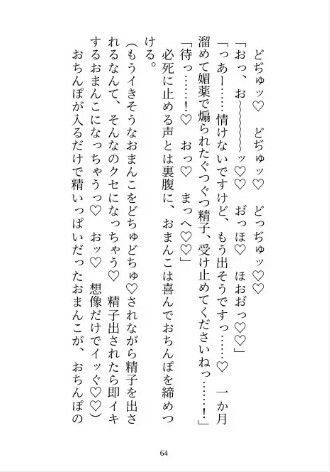 どぢゅッ♡　どぢゅッ♡　どっぢゅッ♡♡
「おっ、お〜〜〜〜ッ♡♡　おっほ♡　ほおおっ♡♡」
「っあー……情けないですけど、もう出そうですっ……♡　一か月
溜めて媚薬で煽られたぐつぐつ精子、受け止めてくださいねっ……！」
「待っ……！♡　おっ♡　まっへ♡♡」
　必死に止める声とは裏腹に、おまんこは喜んでおちんぽを締めつ
ける。
（もうイきそうなおまんこをどちゅどちゅ♡されながら精子を出さ
れるなんて、そんなのクセになっちゃう♡　精子出されたら即イキ
するおまんこになっちゃうっ♡　おッ♡　想像だけでイッぐ♡♡）
　おちんぽが入るだけで精いっぱいだったおまんこが、おちんぽの
64